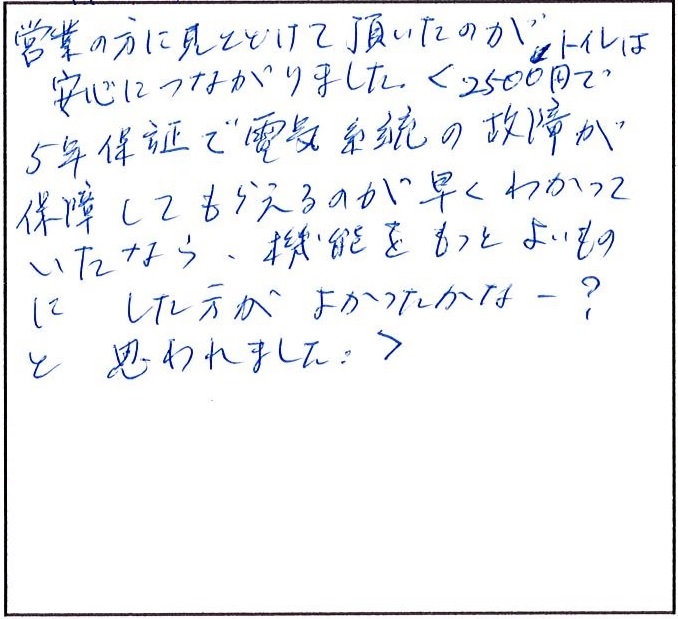 営業の方に見とどけて頂いたのが
安心につながりました。<トイレは2500円で
5年保証で電気系統の故障が
保障してもらえるのが早くわかって
いたなら、機能をもっとよいもの
に した方が よかったかなー?
と 思われました。>